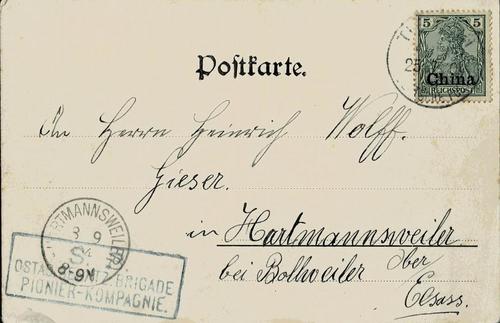 5 5
China
REICHSPOST
25
Postkarte.
An Herrn Heinrich Wolff.
Gieser.
in Hartmannsweiler
bei Bollweiler Ober
Elsass.
HARTMANNSWEILER
8 9
8-9N
BRIGADE
PIONIER-KOMPAGNIE.